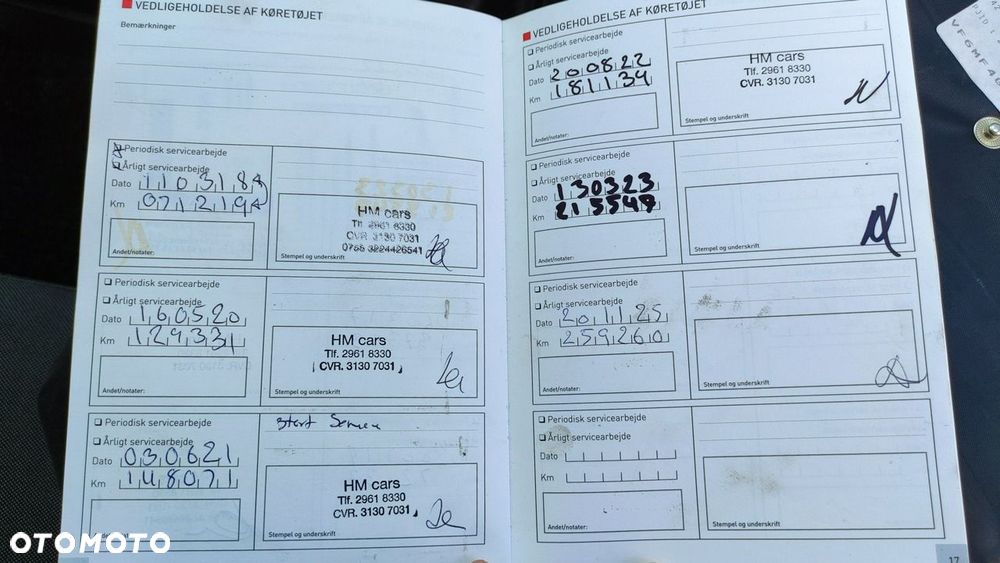 VEDLIGEHOLDELSE AF KØRETØJET
Bemærkninger
Periodisk servicearbejde
Årligt servicearbejde
Dato 110318
Km 071219
Andet/notater:
HM cars
Tlf. 2961 8330
CVR. 3130 7031
Stempel og underskrift
Periodisk servicearbejde
Årligt servicearbejde
Dato 160520
Km 129331
Andet/notater:
HM cars
Tlf. 2961 8330
CVR. 3130 7031
Stempel og underskrift
Periodisk servicearbejde
Årligt servicearbejde
Dato 030621
Km 148071
Andet/notater:
HM cars
Tlf. 2961 8330
CVR. 3130 7031
Stempel og underskrift
VEDLIGEHOLDELSE AF KØRETØJET
Periodisk servicearbejde
Årligt servicearbejde
Dato 200822
Km 181134
Andet/notater:
HM cars
Tlf. 2961 8330
CVR. 3130 7031
Stempel og underskrift
Periodisk servicearbejde
Årligt servicearbejde
Dato 130323
Km
Andet/notater:
Stempel og underskrift
Periodisk servicearbejde
Årligt servicearbejde
Dato 201125
Km 259260
Andet/notater:
Stempel og underskrift
Periodisk servicearbejde
Årligt servicearbejde
Dato
Km
Andet/notater:
Stempel og underskrift
17
OTOMOTO